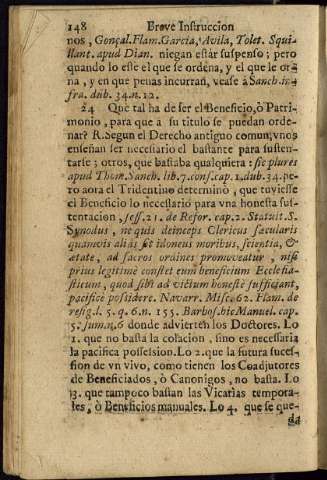 148 Breve Instruccion
nos, Gonçal. Flam. Garcia, Avila, Tolet. Squi-
llant. apud Dian. niegan estàr suspenso; pero
quando lo este el que se ordena, y el que le orde-
na, y en que penas incurran, vease à Sanch. in-
fra. dub. 34. n. 12.
24 Que tal ha de ser el Beneficio, ò Patri-
monio, para que a su titulo se puedan orde-
nar? R. Segun el Derecho antiguo comun, vnos
enseñan ser necessario el bastante para susten-
tarse; otros, que bastaba qualquiera: sic plures
apud Thom. Sanch. lib. 7. cons. cap. 1. dub. 34. pe-
ro aora el Tridentino determinò, que tuviesse
el Beneficio lo necessario para vna honesta sus-
tentacion, sess. 21. de Refor. cap. 2. Statuit S.
Synodus, ne quis deinceps Clericus sæcularis
quamvis aliàs sit idoneus moribus, scientia, &
ætate, ad sacros ordines promoveatur, nisi
prius legitimè constet eum beneficium Ecclesia-
sticum, quod sibi ad victum honestè sufficiant,
pacificè possidere. Navarr. Misc. 62. Flam. de
resig. l. 5. q. 6. n. 155. Barbos. hic Manuel. cap.
5. sum. n. 6 donde advierten los Doctores. Lo
1. que no basta la colacion, sino es necessaria
la pacifica possession. Lo 2. que la futura suces-
sion de vn vivo, como tienen los Coadjutores
de Beneficiados, ò Canonigos, no basta. Lo
3. que tampoco bastan las Vicarias tempora-
les, ò Beneficios manuales. Lo 4. que se que-
da